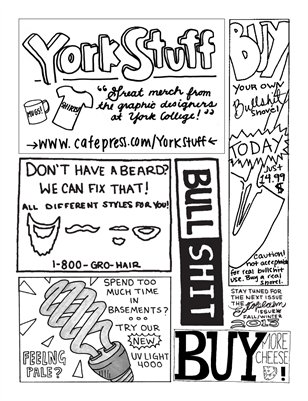 York Stuff
"Great merch from
the graphic designers
at York College!"
MUGS!
SHIRTS!
→www.cafepress.com/Yorkstuff←
BUY
YOUR OWN
Bullshit
Shovel!
TODAY
JUST
14.99
$
caution!
not acceptable
for real bullshit
use. Buy a real
shovel.
DON'T HAVE A BEARD?
WE CAN FIX THAT!
ALL DIFFERENT STYLES FOR YOU!
1-800-GRO-HAIR
BULLSHIT
SPEND TOO
MUCH TIME
IN BASEMENTS?
TRY OUR
NEW
UV LIGHT
4000
FEELING
PALE?
STAY TUNED FOR
THE NEXT ISSUE
THE
ISSUE
FALL/WINTER
2015
BUY
MORE
CHEESE
!